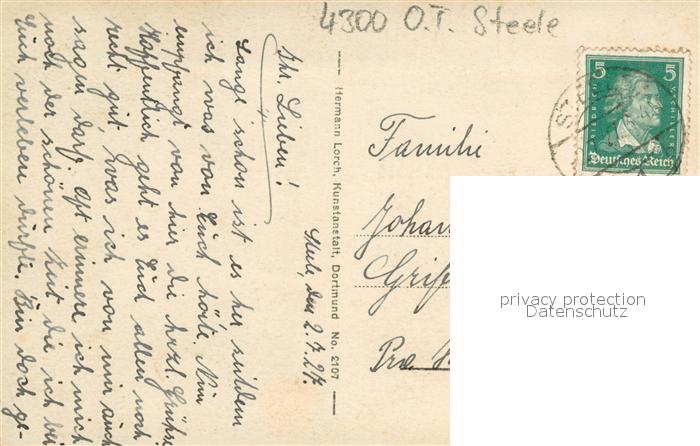 4300 O.T. Steele
Steele, den 2.7.27.
Ihr Lieben!
Lange schon ist es her seitdem
ich was von Euch hörte. Nun
empfangt von hier die herzl. Grüße
Hoffentlich geht es Euch allen noch
recht gut, was ich von mir auch
sagen darf. Oft erinnere ich mich
noch der schönen Zeit die ich bei
Euch verleben durfte. Bin doch ge-
Hermann Lorch, Kunstanstalt, Dortmund No. 2107
Familie
Johan
5 5
FRIEDRICH V. SCHILLER
Deutsches Reich
privacy protection
Datenschutz